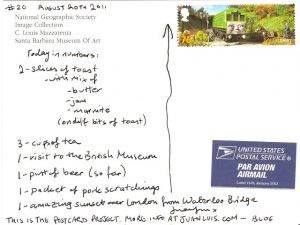 #20 AUGUST 20TH 2011
National Geographic Society
Image Collection
C. Louis Mazzatenta
Santa Barbara Museum Of Art
Today in numbers:
2 - slices of toast
- with mix of
- butter
- jam
- marmite
(on diff bits of toast)
3 - cups of tea
1 - visit to the British Museum
1 - pint of beer (so far)
1 - packet of pork scratchings
1 - amazing sunset over London from Waterloo Bridge
THIS IS THE POSTCARD PROJECT. MORE INFO AT JUANLUIS.COM - BLOG
UNITED STATES
POSTAL SERVICE®
PAR AVION
AIRMAIL